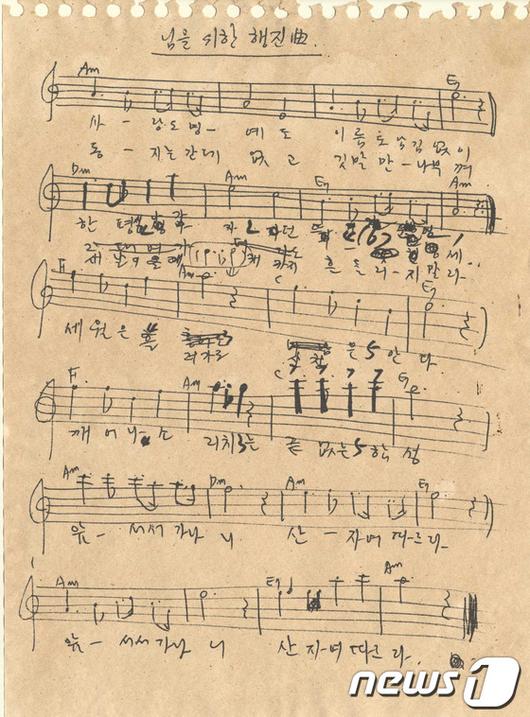 님을 위한 행진曲.
Am E7
사 - 랑도 명 - 예 도 이름도 남김 없이
동 - 지는 간데 없고 깃발만 - 나부껴
Dm Am E7 Am
한 평생 자 던
새 날이 올 때 까지 흔들리 - 지 말라 -
F Am C E7
세 월은 흘
러가도
산천 은 안 다
F Am C G
깨 어 나 - 소 리치는 끝 없는 함 성
Am Dm Am E7
앞 - 서서 가나 니 산 - 자여 따르라 -
Am E7 Am
앞 - 서서 가나 니 산 자여 따르 라.
news1